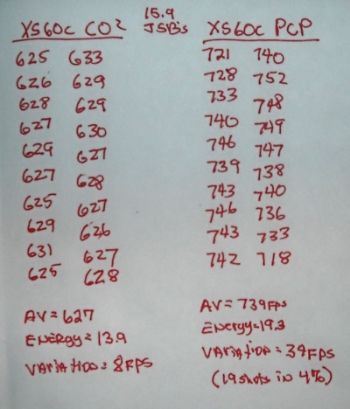 15.9
JSB's
XS60c CO²
625 633
626 629
628 629
627 630
629 627
627 628
625 627
629 626
631 627
625 628
AV = 627
ENERGY = 13.9
VARIATION = 8 FPS
XS60c PCP
721 740
728 752
733 748
740 749
746 747
739 738
743 740
746 736
743 733
742 718
AV = 739 FPS
Energy = 19.3
VARIATION = 34 FPS
(19 shots in 4%)